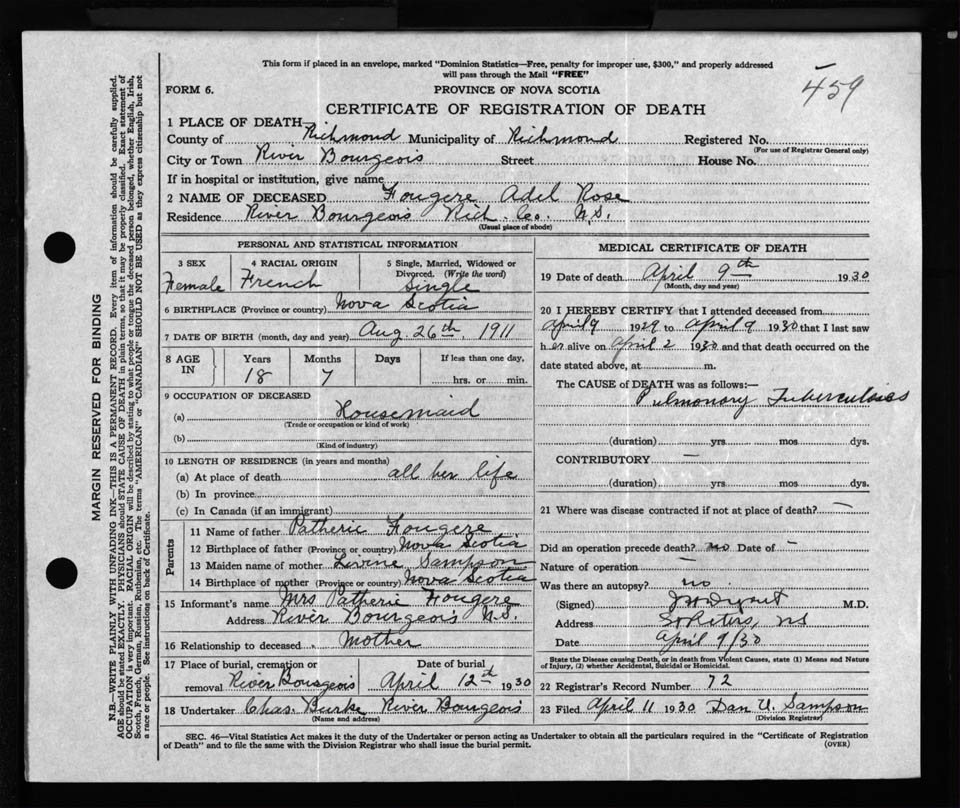 This form if placed in an envelope, marked "Dominion Statistics—Free, penalty for improper use, $300," and properly addressed
will pass through the Mail "FREE"
459
FORM 6.
PROVINCE OF NOVA SCOTIA
CERTIFICATE OF REGISTRATION OF DEATH
1 PLACE OF DEATH—
County of Richmond Municipality of Richmond Registered No.
(For use of Registrar General only)
City or Town River Bourgeois Street House No.
If in hospital or institution, give name
2 NAME OF DECEASED Fougere Adel Rose
Residence River Bourgeois Rich. Co. N.S.
(Usual place of abode)
PERSONAL AND STATISTICAL INFORMATION
3 SEX
Female
4 RACIAL ORIGIN
French
5 Single, Married, Widowed or
Divorced. (Write the word)
Single
6 BIRTHPLACE (Province or country) Nova Scotia
7 DATE OF BIRTH (month, day and year) Aug. 26th, 1911
8 AGE IN
Years Months Days If less than one day,
18 7 hrs. or min.
9 OCCUPATION OF DECEASED
(a) Housemaid
(Trade or occupation or kind of work)
(b)
(Kind of industry)
10 LENGTH OF RESIDENCE (in years and months)
(a) At place of death all her life
(b) In province
(c) In Canada (if an immigrant)
Parents
11 Name of father Patheric Fougere
12 Birthplace of father (Province or country) Nova Scotia
13 Maiden name of mother Levine Sampson
14 Birthplace of mother (Province or country) Nova Scotia
15 Informant's name Mrs Patheric Fougere
Address River Bourgeois N.S.
16 Relationship to deceased Mother
17 Place of burial, cremation or Date of burial
removal River Bourgeois April 12th 1930
18 Undertaker Chas. Burke River Bourgeois
(Name and address)
MEDICAL CERTIFICATE OF DEATH
19 Date of death April 9th 1930
(Month, day and year)
20 I HEREBY CERTIFY that I attended deceased from
April 9 1929 to April 9 1930 that I last saw
h er alive on April 2 1930 and that death occurred on the
date stated above, at m.
The CAUSE of DEATH was as follows:—
Pulmonary Tuberculosis
(duration) yrs. mos dys.
CONTRIBUTORY —
(duration) yrs. mos. dys.
21 Where was disease contracted if not at place of death? —
Did an operation precede death? no Date of —
Nature of operation —
Was there an autopsy? no
(Signed) M.D.
Address St Peters, NS
Date April 9/30
State the Disease causing Death, or in death from Violent Causes, state (1) Means and Nature
of Injury, (2) whether Accidental, Suicidal or Homicidal.
22 Registrar's Record Number 72
23 Filed April 11 1930 Dan U. Sampson
(Division Registrar)
SEC. 46—Vital Statistics Act makes it the duty of the Undertaker or person acting as Undertaker to obtain all the particulars required in the "Certificate of Registration
of Death" and to file the same with the Division Registrar who shall issue the burial permit.
(OVER)
MARGIN RESERVED FOR BINDING
N.B.—WRITE PLAINLY WITH UNFADING INK—THIS IS A PERMANENT RECORD. Every item of information should be carefully supplied.
AGE should be stated EXACTLY. PHYSICIANS should STATE CAUSE OF DEATH in plain terms, so that it may be properly classified. Exact statement of
OCCUPATION is very important. RACIAL ORIGIN will be described by stating to what people or tongue the deceased person belonged, whether English, Irish,
Scotch, French, German, Russian, Ruthenian, etc. The terms "AMERICAN" or "CANADIAN" SHOULD NOT BE USED as they express citizenship but not
a race or people. See instructions on back of Certificate.